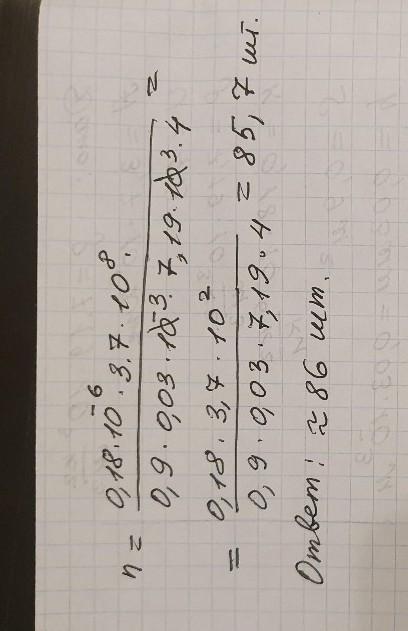 n = 0,18·10⁻⁶·3,7·10⁸· / 0,9·0,03·10⁻³·7,19·10³·4 =
= 0,18·3,7·10² / 0,9·0,03·7,19·4 = 85,7 шт.
Ответ: ≈86 шт.